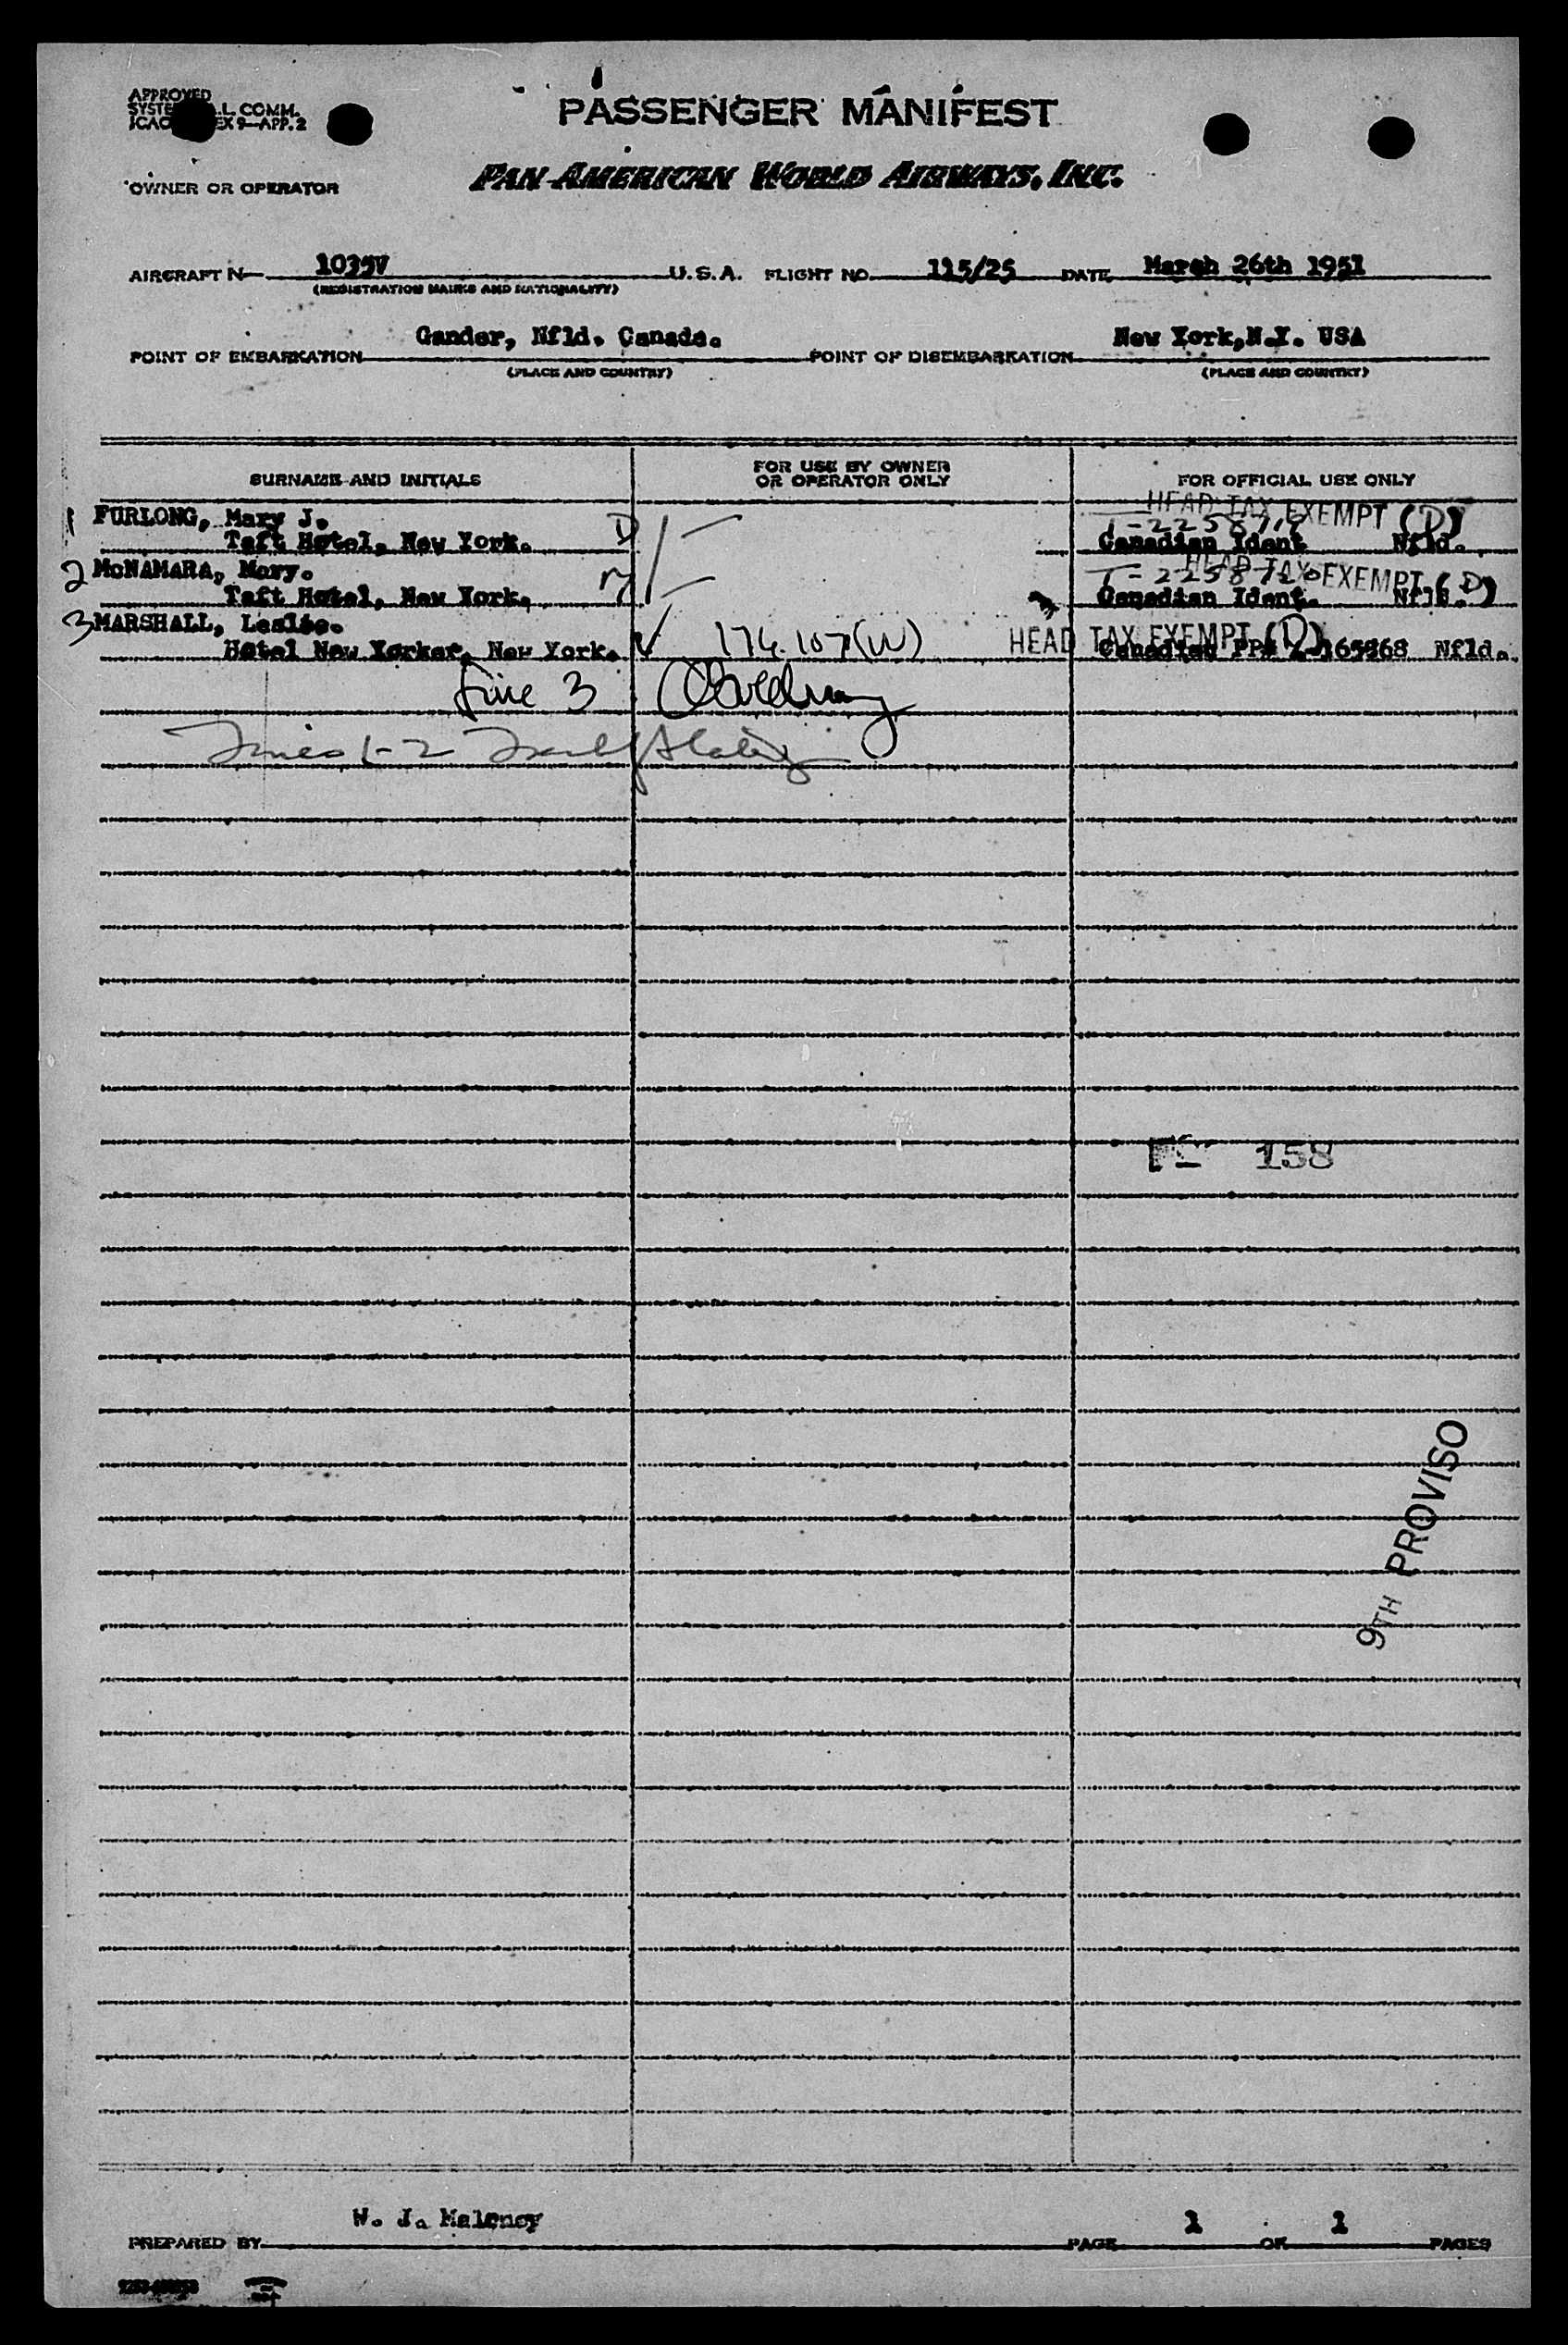 APPROVED
PASSENGER MANIFEST
PAN AMERICAN WORLD AIRWAYS, INC.
OWNER OR OPERATOR
AIRCRAFT N— 1035V U.S.A. FLIGHT NO. 115/25 DATE March 26th 1951
(REGISTRATION MARKS AND NATIONALITY)
Gander, Nfld. Canada. New York,N.Y. USA
POINT OF EMBARKATION POINT OF DISEMBARKATION
(PLACE AND COUNTRY) (PLACE AND COUNTRY)
SURNAME AND INITIALS FOR USE BY OWNER OR OPERATOR ONLY FOR OFFICIAL USE ONLY
HEAD TAX EXEMPT (D)
1 FURLONG, Mary J.
Taft Hotel, New York. Canadian Ident Nfld.
HEAD TAX EXEMPT (D)
2 McNAMARA, Mary.
Taft Hotel, New York. Canadian Ident. Nfld.
3 MARSHALL, Leslie.
Hotel New Yorker, New York. 174.107(W) HEAD TAX EXEMPT (D) Canadian Nfld.
Line 3
Lines 1-2
158
9TH PROVISO
W. J. Maloney
PREPARED BY PAGE 1 OF 1 PAGES